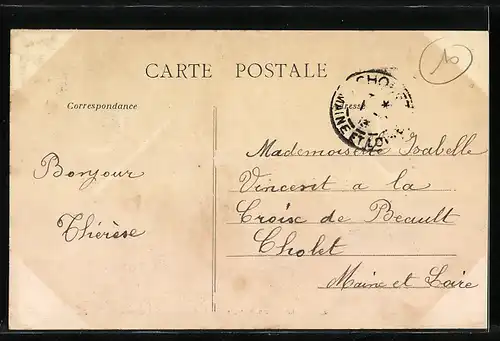 CARTE POSTALE
Correspondance
Adresse
CHOLET
MAINE ET LOIRE
10
Bonjour
Thérèse
Mademoiselle Isabelle
Vincent a la
Croix de Beault
Cholet
Maine et Loire